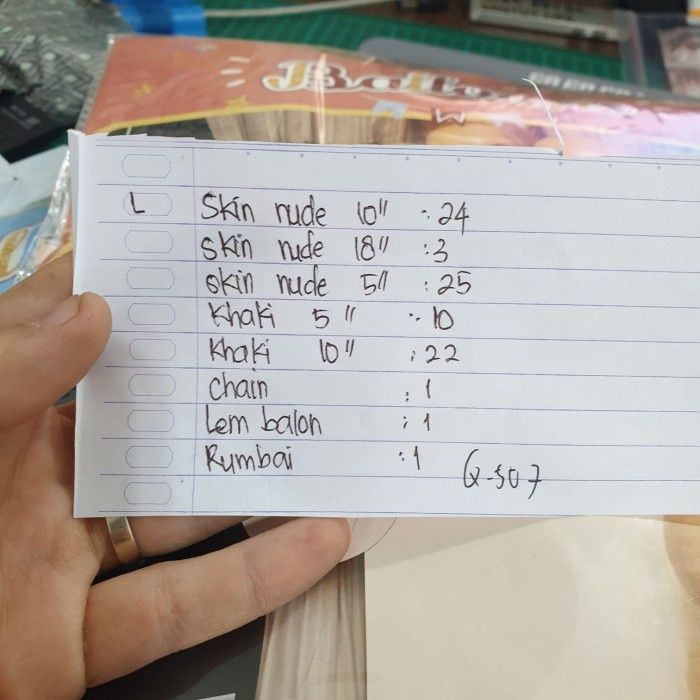 L Skin nude 10" : 24
skin nude 18" : 3
skin nude 5" : 25
Khaki 5" : 10
Khaki 10" : 22
chain : 1
Lem balon : 1
Rumbai : 1
Q-507